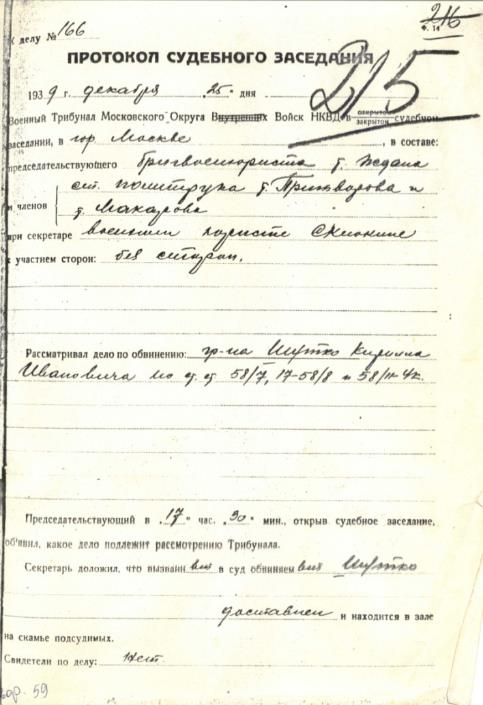 216
К делу № 166
Ф. 14
215
ПРОТОКОЛ СУДЕБНОГО ЗАСЕДАНИЯ
1939 г. декабря „25" дня
Военный Трибунал Московского Округа Внутренних Войск НКВД в открытом закрытом судебном
заседании, в гор. Москве, в составе:
председательствующего бригвоенюриста т. Ждана
и членов ст. политрука т. Приговорова и
т. Макарова
при секретаре военном юристе
с участием сторон: без сторон.
Рассматривал дело по обвинению: гр-на Шутко Кирилла
Ивановича по ст. ст. 58/7, 17-58/8 и 58/11 УК.
Председательствующий в „17" час. „30" мин., открыв судебное заседание,
об'явил, какое дело подлежит рассмотрению Трибунала.
Секретарь доложил, что вызванный в суд обвиняемый Шутко
доставлен и находится в зале
на скамье подсудимых.
Свидетели по делу: Нет.
кор. 59